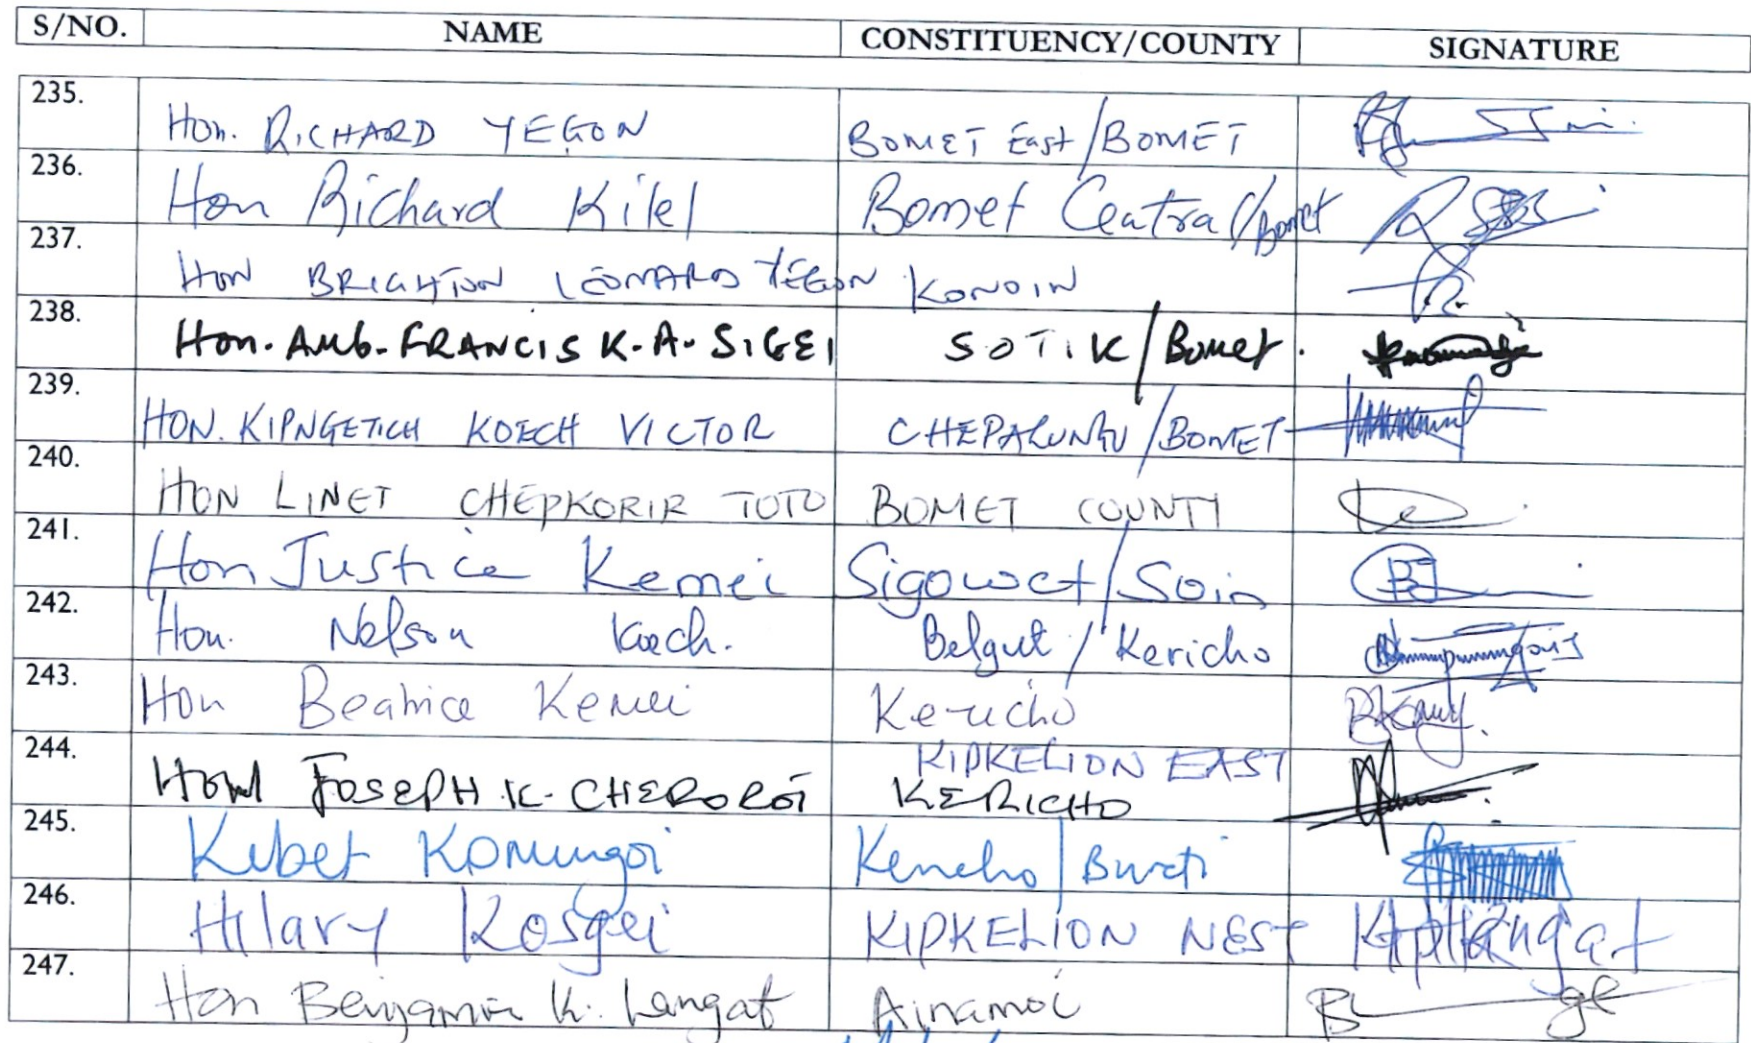 S/NO. NAME CONSTITUENCY/COUNTY SIGNATURE
235. Hon. RICHARD YEGON BOMET East/BOMET
236. Hon Richard Kilel Bomet Central/Bomet
237. HON BRIGHTON LEONARD YEGON KONOIN
238. Hon. AMB. FRANCIS K. A. SIGEI SOTIK/Bomet.
239. HON. KIPNGETICH KOECH VICTOR CHEPALUNGU/BOMET
240. HON LINET CHEPKORIR TOTO BOMET COUNTY
241. Hon Justice Kemei Sigowet/Soin
242. Hon. Nelson Koech. Belgut/Kericho
243. Hon Beatrice Kemei Kericho
KIPKELION EAST
244. Hon JOSEPH K. CHEROROT KERICHO
245. Kibet Komingoi Kericho/Bureti
246. Hilary Kosgei KIPKELION WEST
247. Hon Benjamin K. Langat Ainamoi